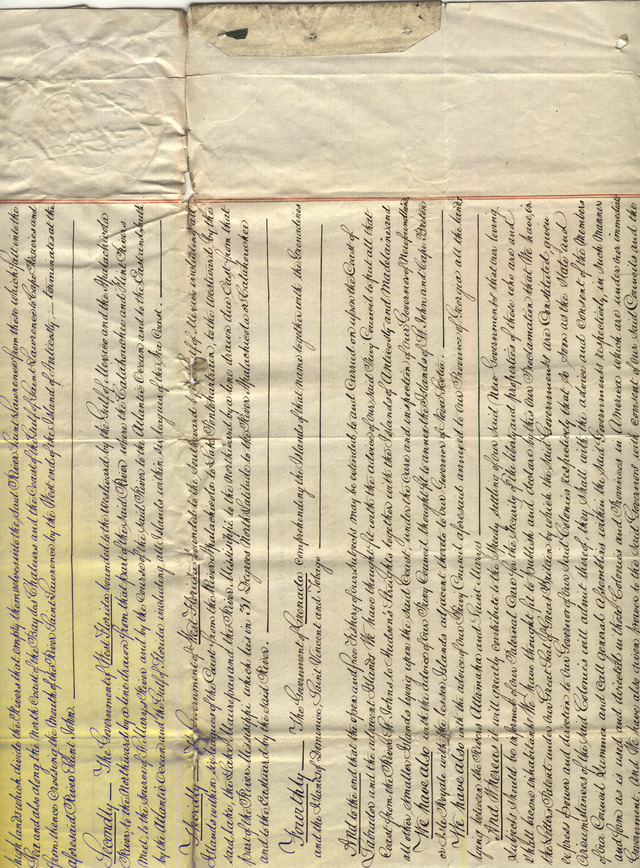 high lands which divide the Rivers that empty themselves into the said River Saint Lawrence from those which fall into the
Sea and also along the North Coast of the Bay des Chaleurs and the Coast of the Gulf of Saint Lawrence to Cape Rosieres and
from thence Crossing the Mouth of the River Saint Lawrence by the West end of the Island of Anticosty, terminates at the
aforesaid River Saint John.
Secondly — The Government of West Florida bounded to the Westward by the Gulf of Mexico and the Apalachicola
River; to the Northward by a line drawn from that part of the said River where the Catahouchee and Flint Rivers
Meet, to the Source of St. Mary's River and by the Course of the said River to the Atlantic Ocean and to the East and South
by the Atlantic Ocean and the Gulf of Florida including all Islands within six leagues of the Sea Coast.
Thirdly — The Government of West Florida bounded to the Southward by the Gulf of Mexico including all
Islands within six leagues of the Coast from the River Apalachicola to Lake Pontchartrain; to the Westward by the
said Lake, the Lake Maurepas and the River Mississippi to the Northward by a line drawn due East from that
part of the River Mississippi which lies in 31 Degrees North Latitude to the River Apalachicola or Catahouchee
and to the Eastward by the said River.
Fourthly — The Government of Grenada comprehending the Islands of that name together with the Grenadines
and the Islands of Dominico Saint Vincent and Tobago
And to the end that the open and free Fishery of our Subjects may be extended to and Carried on upon the Coast of
Labrador and the adjacent Islands We have thought fit with the advice of our said Privy Council to put all that
Coast from the River St. Johns to Hudsons Streights together with the Islands of Anticosty and Madelaine and
all other smaller Islands lying upon the said Coast, under the care and inspection of our Governor of Newfoundland
We have also with the advice of our Privy Council thought fit to annex the Islands of St. John and Cape Breton
or Isle Royale with the lesser Islands adjacent thereto to our Governor of Nova Scotia.
We have also with the advice of our Privy Council aforesaid annexed to our Province of Georgia all the lands
lying between the Rivers Attamaha and Saint Marys
And Whereas it will greatly contribute to the Speedy settling of our said New Governments that our loving
Subjects should be informed of our Paternal Care for the Security of the liberty and properties of those who are and
shall become inhabitants We have thought fit to Publish and declare by this our Proclamation that We have, in
the Letters Patent under our Great Seal of Great Britain by which the said Governments are Constituted, given
express Power and direction to our Governors of our said Colonies respectively that so soon as the State and
Circumstances of the said Colonies will admit thereof, they shall with the advice and Consent of the Members
of our Council Summon and Call general Assemblies within the said Governments respectively, in such Manner
and form as is used and directed in those Colonies and Provinces in America which are under our immediate
Government and We have also given Power to the said Governors with consent of our said Councils and the